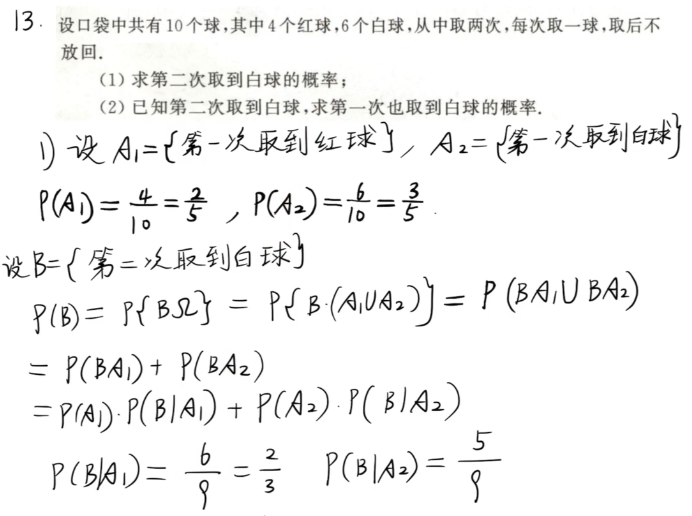 13. 设口袋中共有10个球,其中4个红球,6个白球,从中取两次,每次取一球,取后不
放回.
(1) 求第二次取到白球的概率;
(2) 已知第二次取到白球,求第一次也取到白球的概率.
1) 设 A₁={第一次取到红球}, A₂={第一次取到白球}
P(A₁)=4/10=2/5 , P(A₂)=6/10=3/5.
设B={第二次取到白球}
P(B)= P{BΩ} = P{B·(A₁∪A₂)} = P(BA₁∪BA₂)
= P(BA₁)+ P(BA₂)
=P(A₁)·P(B|A₁) + P(A₂)·P(B|A₂)
P(B|A₁)= 6/9 = 2/3 P(B|A₂)= 5/9